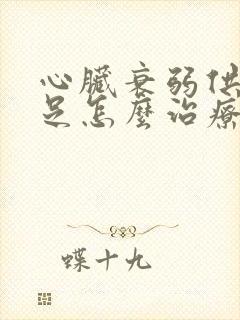 心臟衰弱供
足怎麼治療
蝶十九